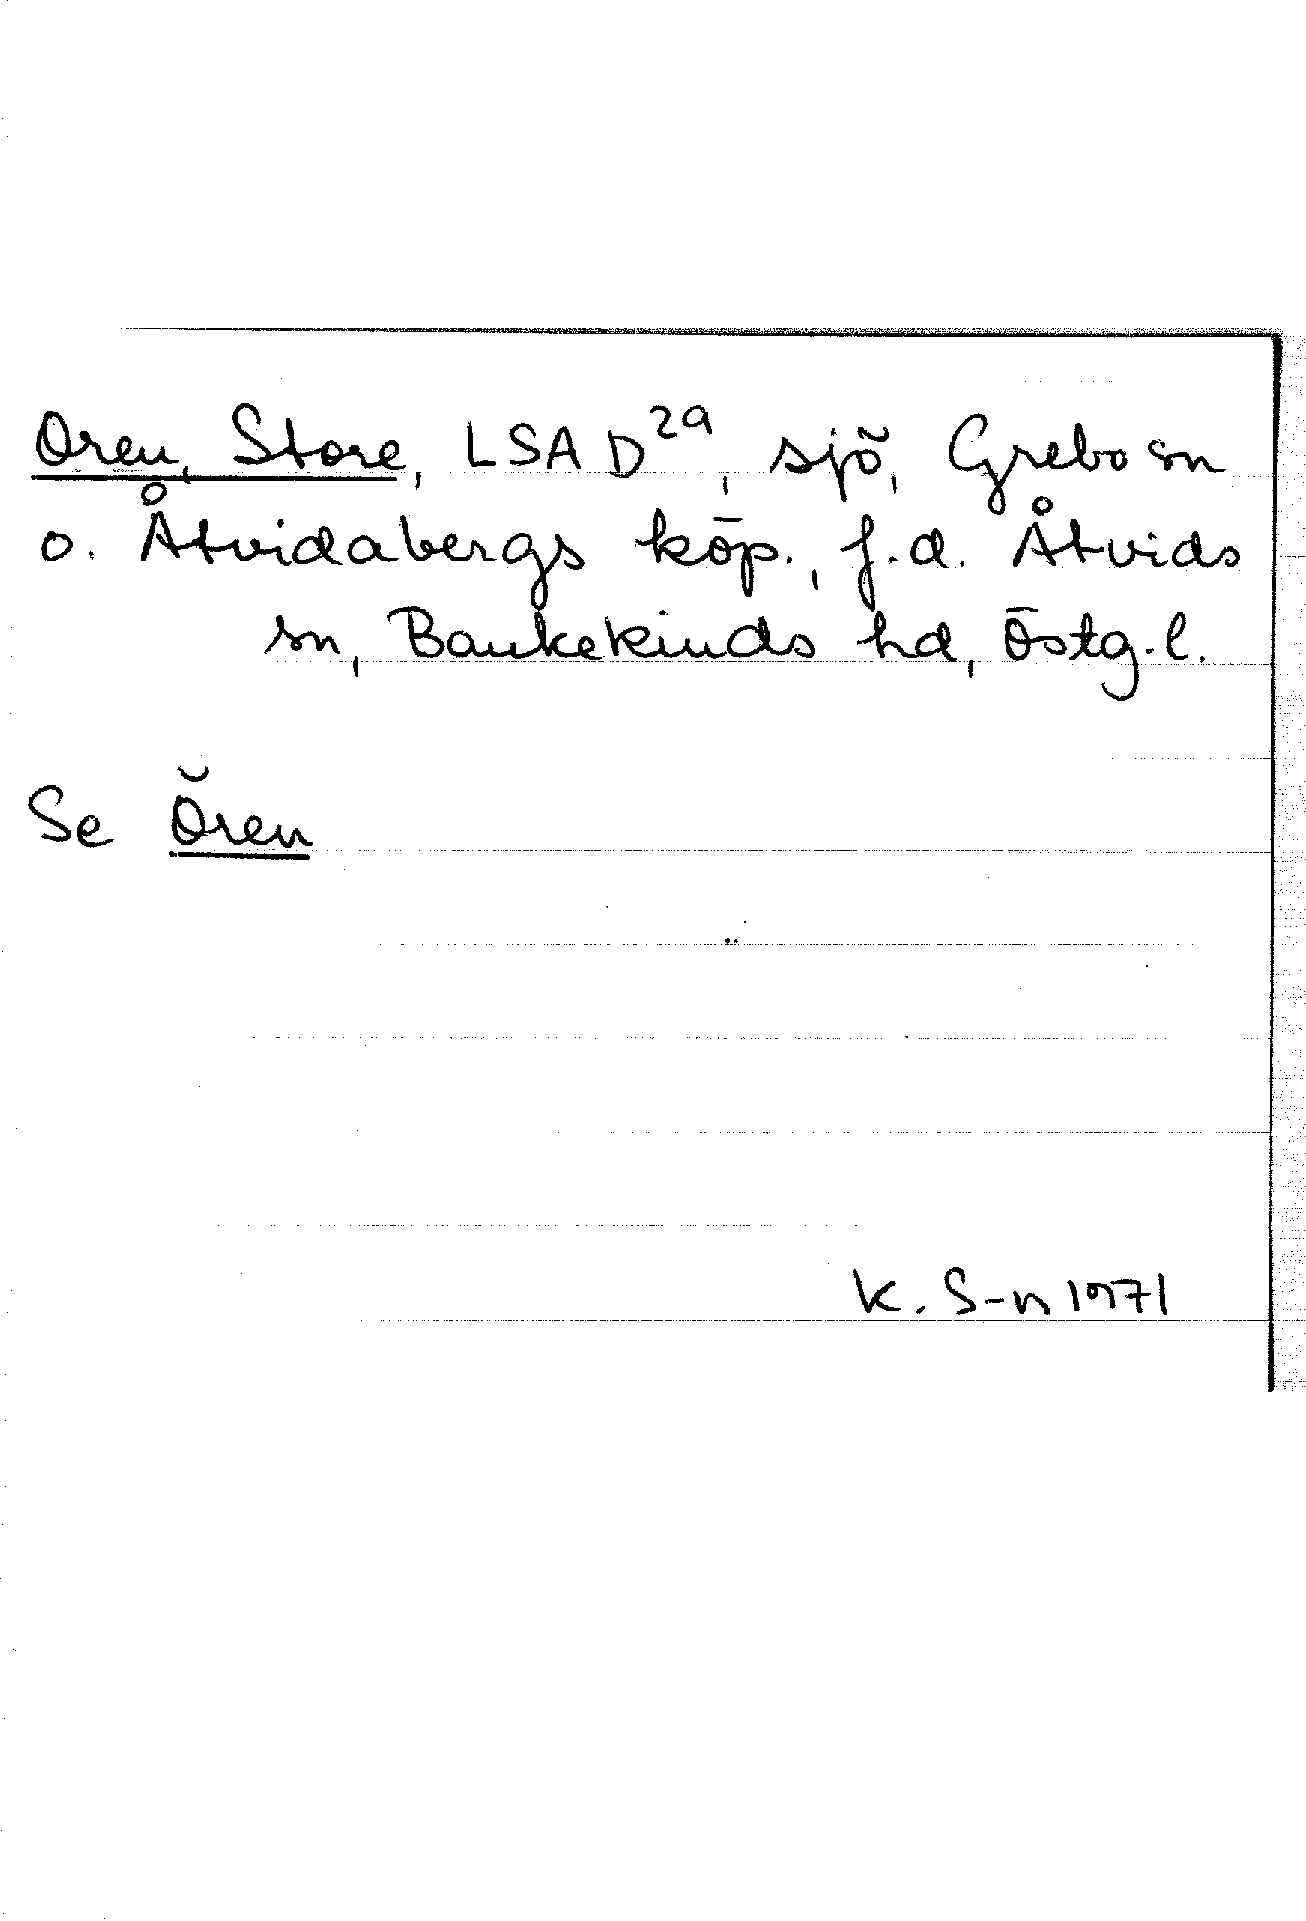 Oren, Store, LSA D²⁹, sjö, Grebo sn
o. Åtvidabergs köp., f.d. Åtvids
sn, Bankekinds hd, Östg.l.
Se Ören
K. S-n 1971